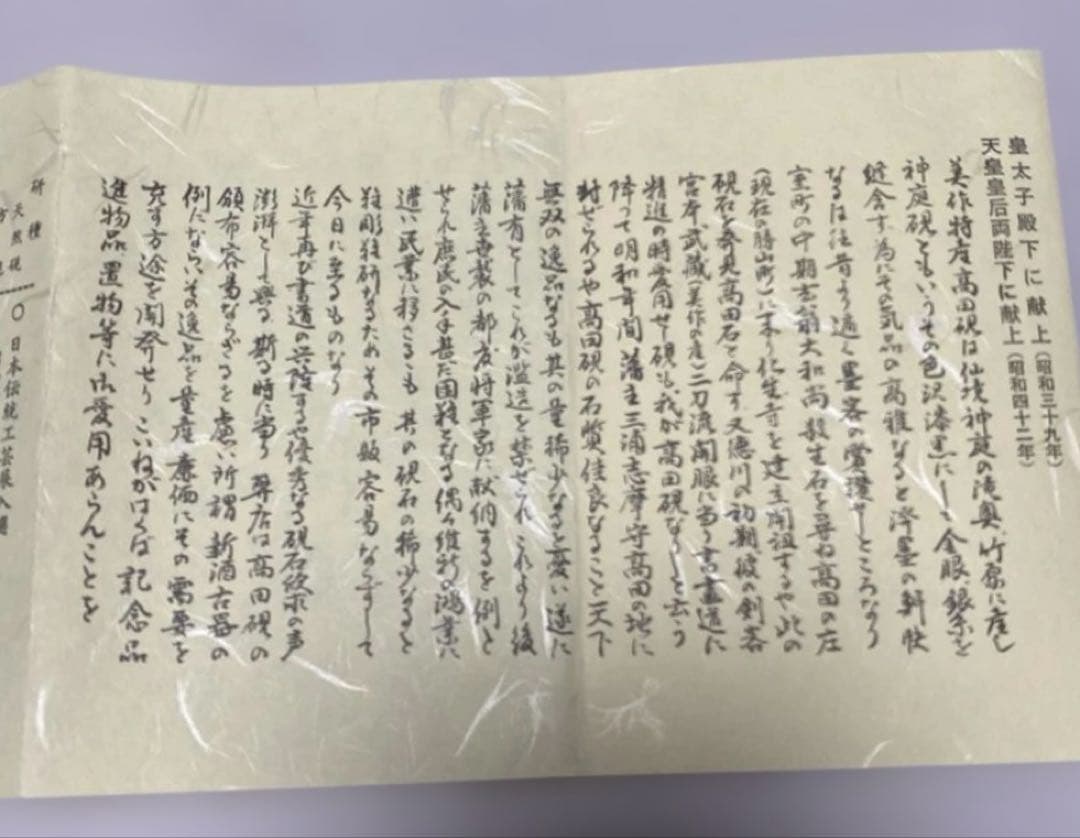 皇太子殿下に献上(昭和三十九年)
天皇皇后両陛下に献上(昭和四十二年)
美作特産高田硯は仙境神庭の滝奥、竹原に産し
神庭硯ともいうその色沢漆黒にして金眼、銀糸を
縫含す、為にその気品の高雅なると溌墨の軽快
なるは往昔より遍く墨客の賞讃せしところなり
室町の中期玄翁大和尚殺生石を尋ね高田の庄
(現在の勝山町)に来り化生寺を建立開祖するや此の
硯石を発見高田石と命す、又徳川の初期、彼の剣客
宮本武蔵(美作の産)二刀流開眼に当り書畫道に
精進の時愛用せし硯も、我が高田硯なりしと云う
降って明和年間藩主三浦志摩守高田の地に
封せられるや高田硯の石質佳良なること天下
無双の逸品なるも其の量稀少なるを憂い遂に
藩有としてこれが濫造を禁ぜられこれより後
藩主喜製の都度将軍家に献納するを例と
せられ庶民の入手甚だ困難となる偶々維新の鴻業に
遭い民業に移さるも其の硯石の稀少なると
難彫難研なるためその市販容易ならずして
今日に至るものなり
近年再び書道の興隆するや優秀なる硯石欲求の声
澎湃として挙る、斯る時に当り弊店は高田硯の
頒布容易ならざるを慮い所謂新酒古器の
例にならいその逸品を量産廉価にその需要を
充す方途を開発せりこいねがはくは記念品
進物品置物等に御愛用あらんことを
研種
天然硯
〇日本伝統工芸展入選